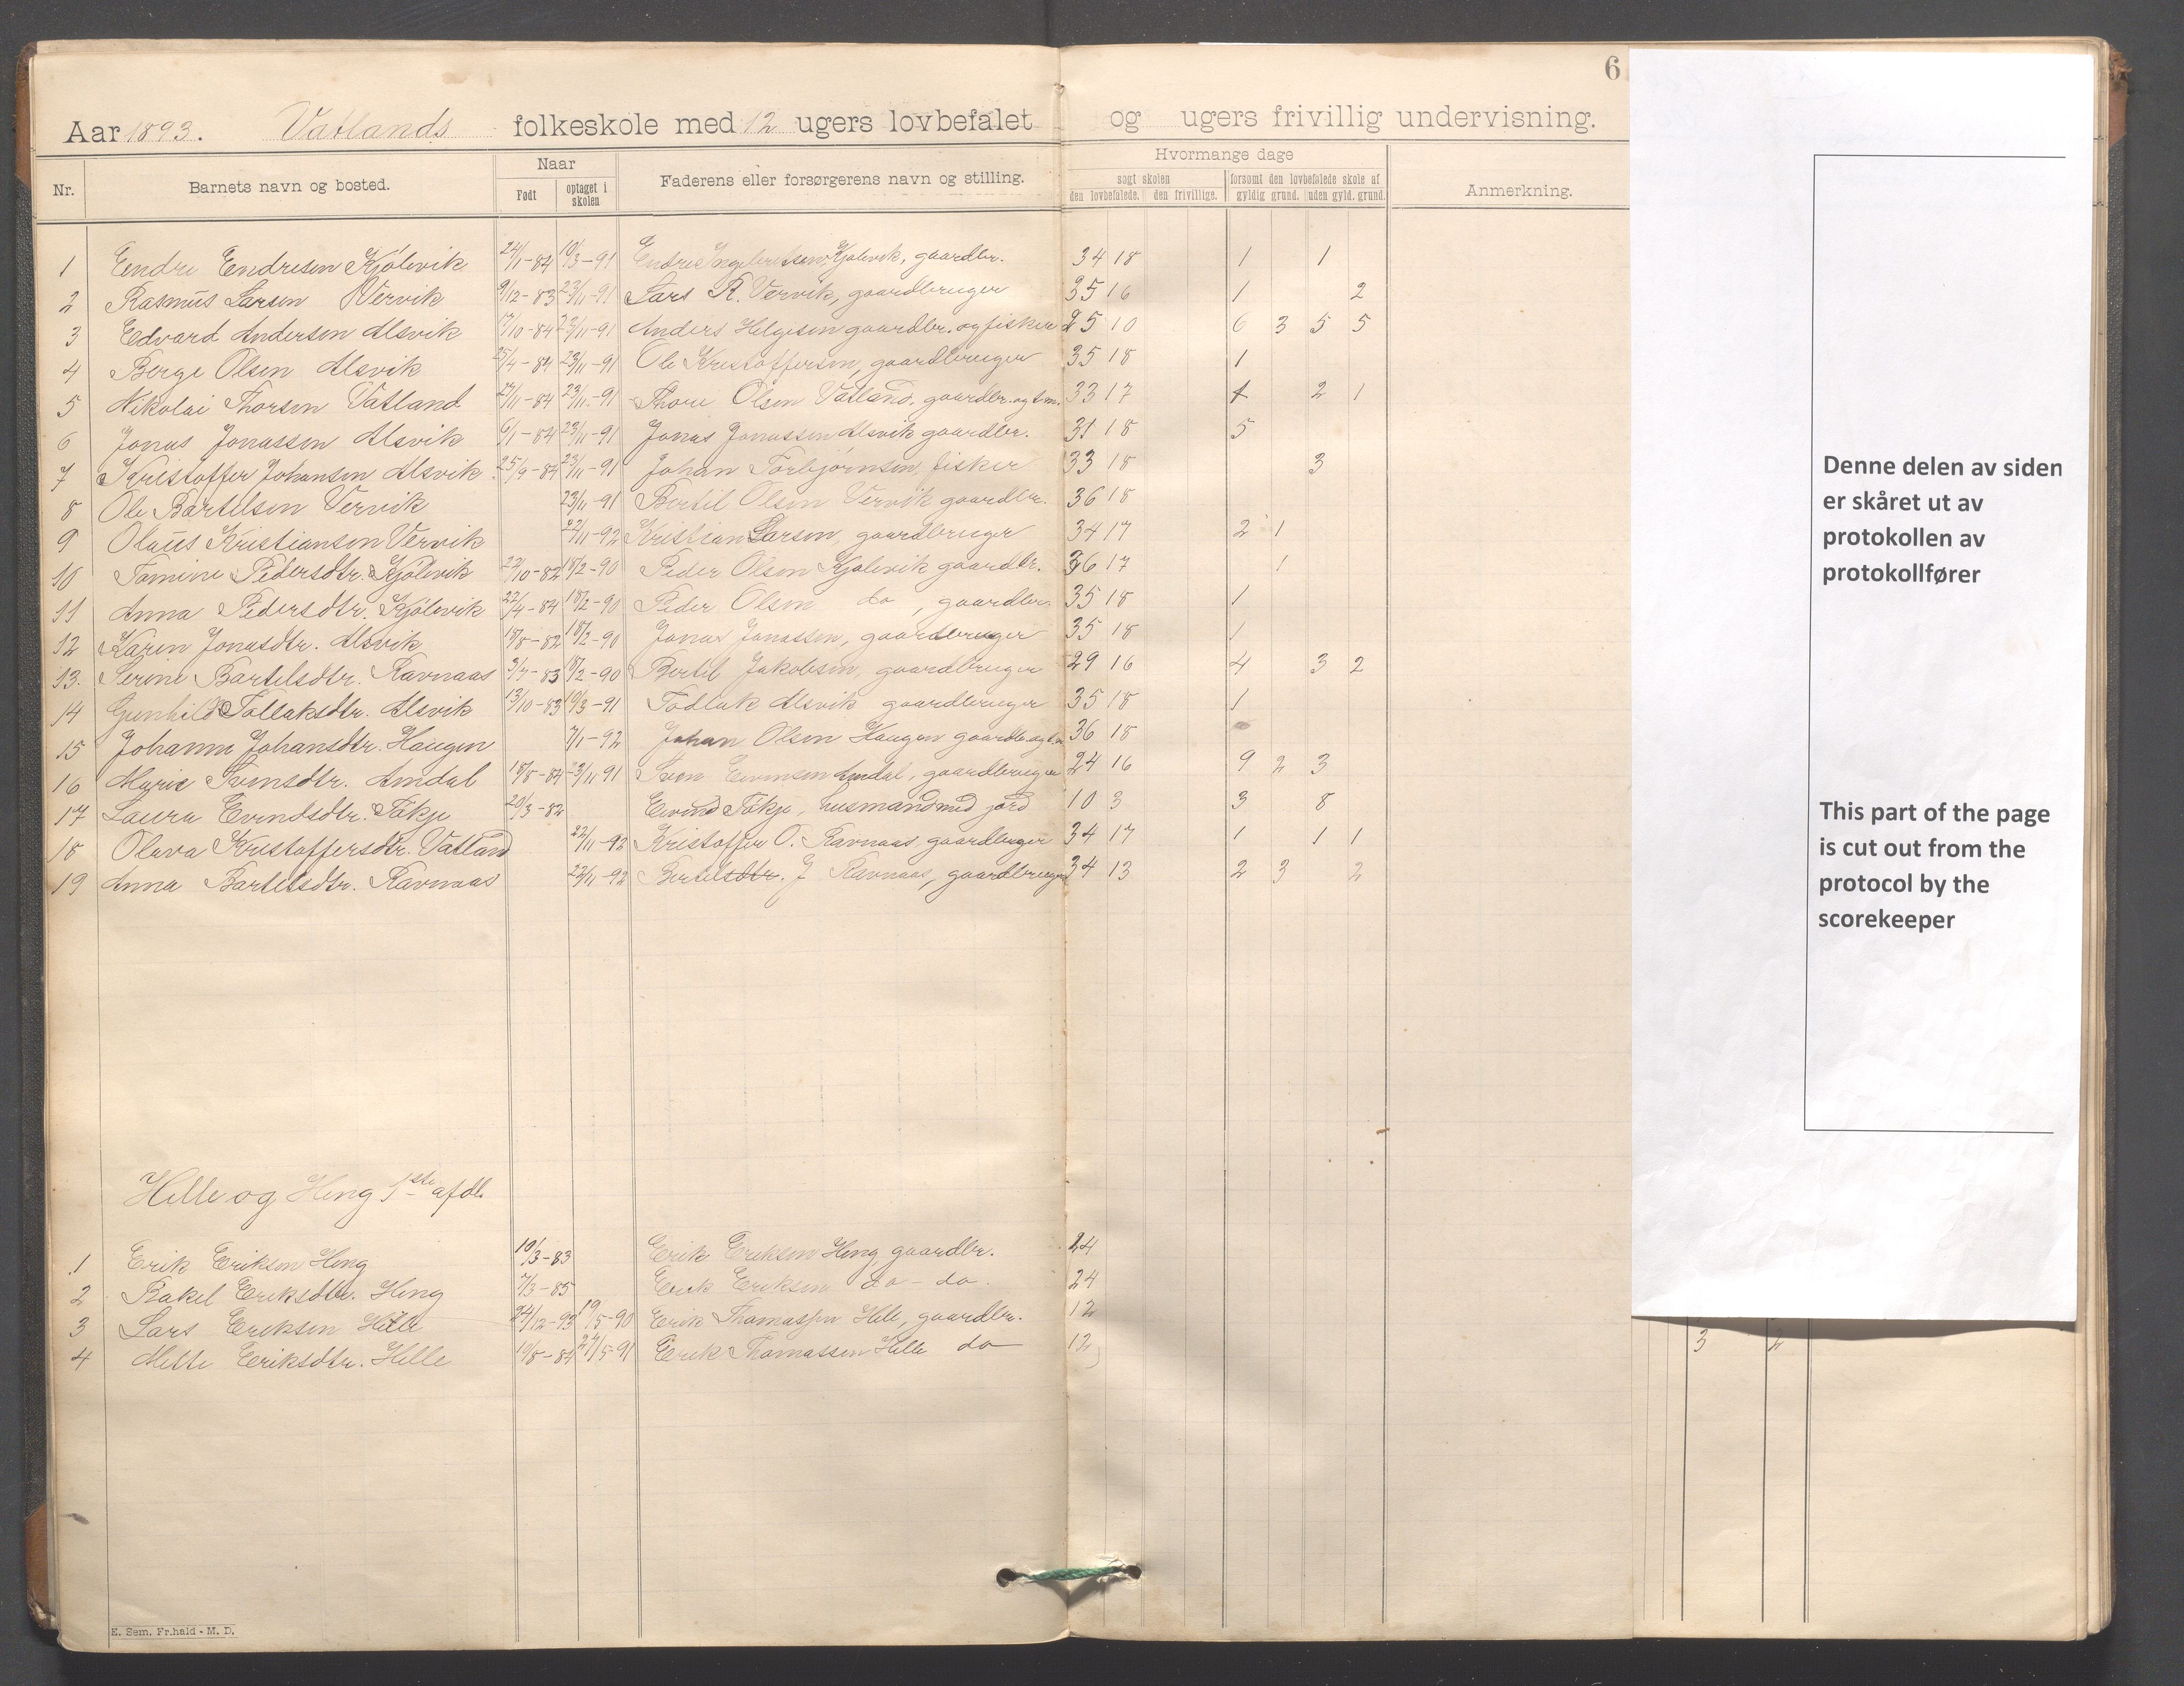 6
Aar 1893. Vatlands folkeskole med 12 ugers lovbefalet og ugers frivillig undervisning.
Nr. Barnets navn og bosted. Naar Født optaget i skolen Faderens eller forsørgerens navn og stilling. Hvormange dage søgt skolen den lovbefalede. den frivillige. forsømt den lovbefalede skole af gyldig grund. uden gyld. grund. Anmerkning.
1 Endre Endresen Kjölevik 24/1-84 10/3-91 Endre Ingebretsen Kjolevik, gaardbr. 34 18 1 1
2 Rasmus Larsen Vervik 9/12-83 23/11-91 Lars R. Vervik, gaardbruger 35 16 1 2
3 Edvard Andersen Alsvik 17/10-84 23/11-91 Anders Helgesen gaardbr. og fisker 25 10 6 3 5 5
4 Berge Olsen Alsvik 25/4-84 23/11-91 Ole Kristoffersen, gaardbruger 35 18 1
5 Nikolai Thorsen Vatland 27/11-84 23/11-91 Thore Olsen Vatland, gaardbr. og 33 17 1 2 1
6 Jonas Jonassen Alsvik 6/1-84 23/11-91 Jonas Jonassen Alsvik gaardbr. 31 18 5
7 Kristoffer Johansen Alsvik 25/9-84 23/11-91 Johan Torbjørnsen, fisker 33 18 3
8 Ole Bartelsen Vervik 23/11-91 Bertil Olsen Vervik gaardbr. 36 18
9 Olaus Kristiansen Vervik 22/11-92 Kristian Larsen, gaardbruger 34 17 2 1
10 Tomine Pedersdtr. Kjölevik 22/10-82 18/2-90 Peder Olsen Kjolevik gaardbr. 36 17 1
11 Anna Pedersdtr. Kjölevik 22/4-84 18/2-90 Peder Olsen do, gaardbr. 35 18 1
12 Karen Jonasdtr. Alsvik 18/8-82 18/2-90 Jonas Jonassen, gaardbruger 35 18 1
13. Serine Bartelsdtr. Ravnaas 3/7-83 18/2-90 Bertil Jakobsen, gaardbruger 29 16 4 3 2
14 Gunhild Tollaksdtr. Alsvik 13/10-83 10/3-91 Todlak Alsvik gaardbruger 35 18 1
15 Johanne Johansdtr. Haugen 7/1-92 Johan Olsen Haugen 36 18
16 Marie Svensdtr. Amdal 18/8-84 23/11 91 Sven Amdal, gaardbruger 24 16 9 2 3
17 Laura Evindsdtr. Tökje 20/3-82 Eivind Tökje, husmand med jord 10 3 3 8
18 Olava Kristoffersdtr. Vatland 22/11-92 Kristoffer O. Ravnaas gaardbruger 34 17 1 1 1
19 Anna Bartelsdtr. Ravnaas 22/11-92 Bertelsdtr. J Ravnaas, gaardbruger 34 13 2 3 2
Hille og Heng 1ste afdl.
1 Erik Eriksen Heng 10/3-83 Erik Eriksen Heng, gaardbr. 24
2 Rakel Eriksdtr. Heng 7/3-85 Erik Eriksen do - do. 24
3 Lars Eriksen Hille 24/12-93 19/5-90 Erik Thomassen Hille, gaardbr. 12
4 Mette Eriksdtr. Hille 10/8-84 27/5-91 Erik Thomassen Hille do 12
3 2
E. Sem. Fr.hald - M. D.
Denne delen av siden
er skåret ut av
protokollen av
protokollfører
This part of the page
is cut out from the
protocol by the
scorekeeper